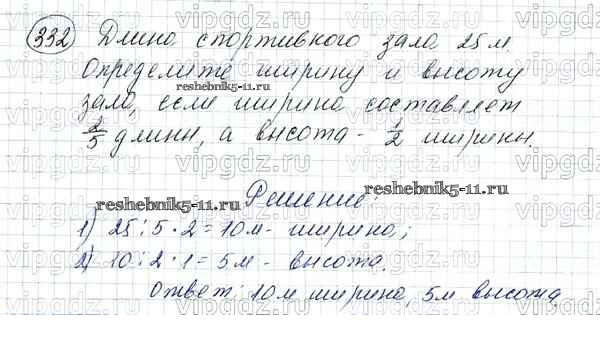 332 Длина спортивного зала 25 м.
Определите ширину и высоту
зала, если ширина составляет
2/5 длины, а высота - 1/2 ширины.
reshebnik5-11.ru
Решение:
reshebnik5-11.ru
reshebnik5-11.ru
1) 25:5·2=10м - ширина;
2) 10:2·1=5м - высота.
Ответ: 10м ширина, 5м высота
vipgdz.ru